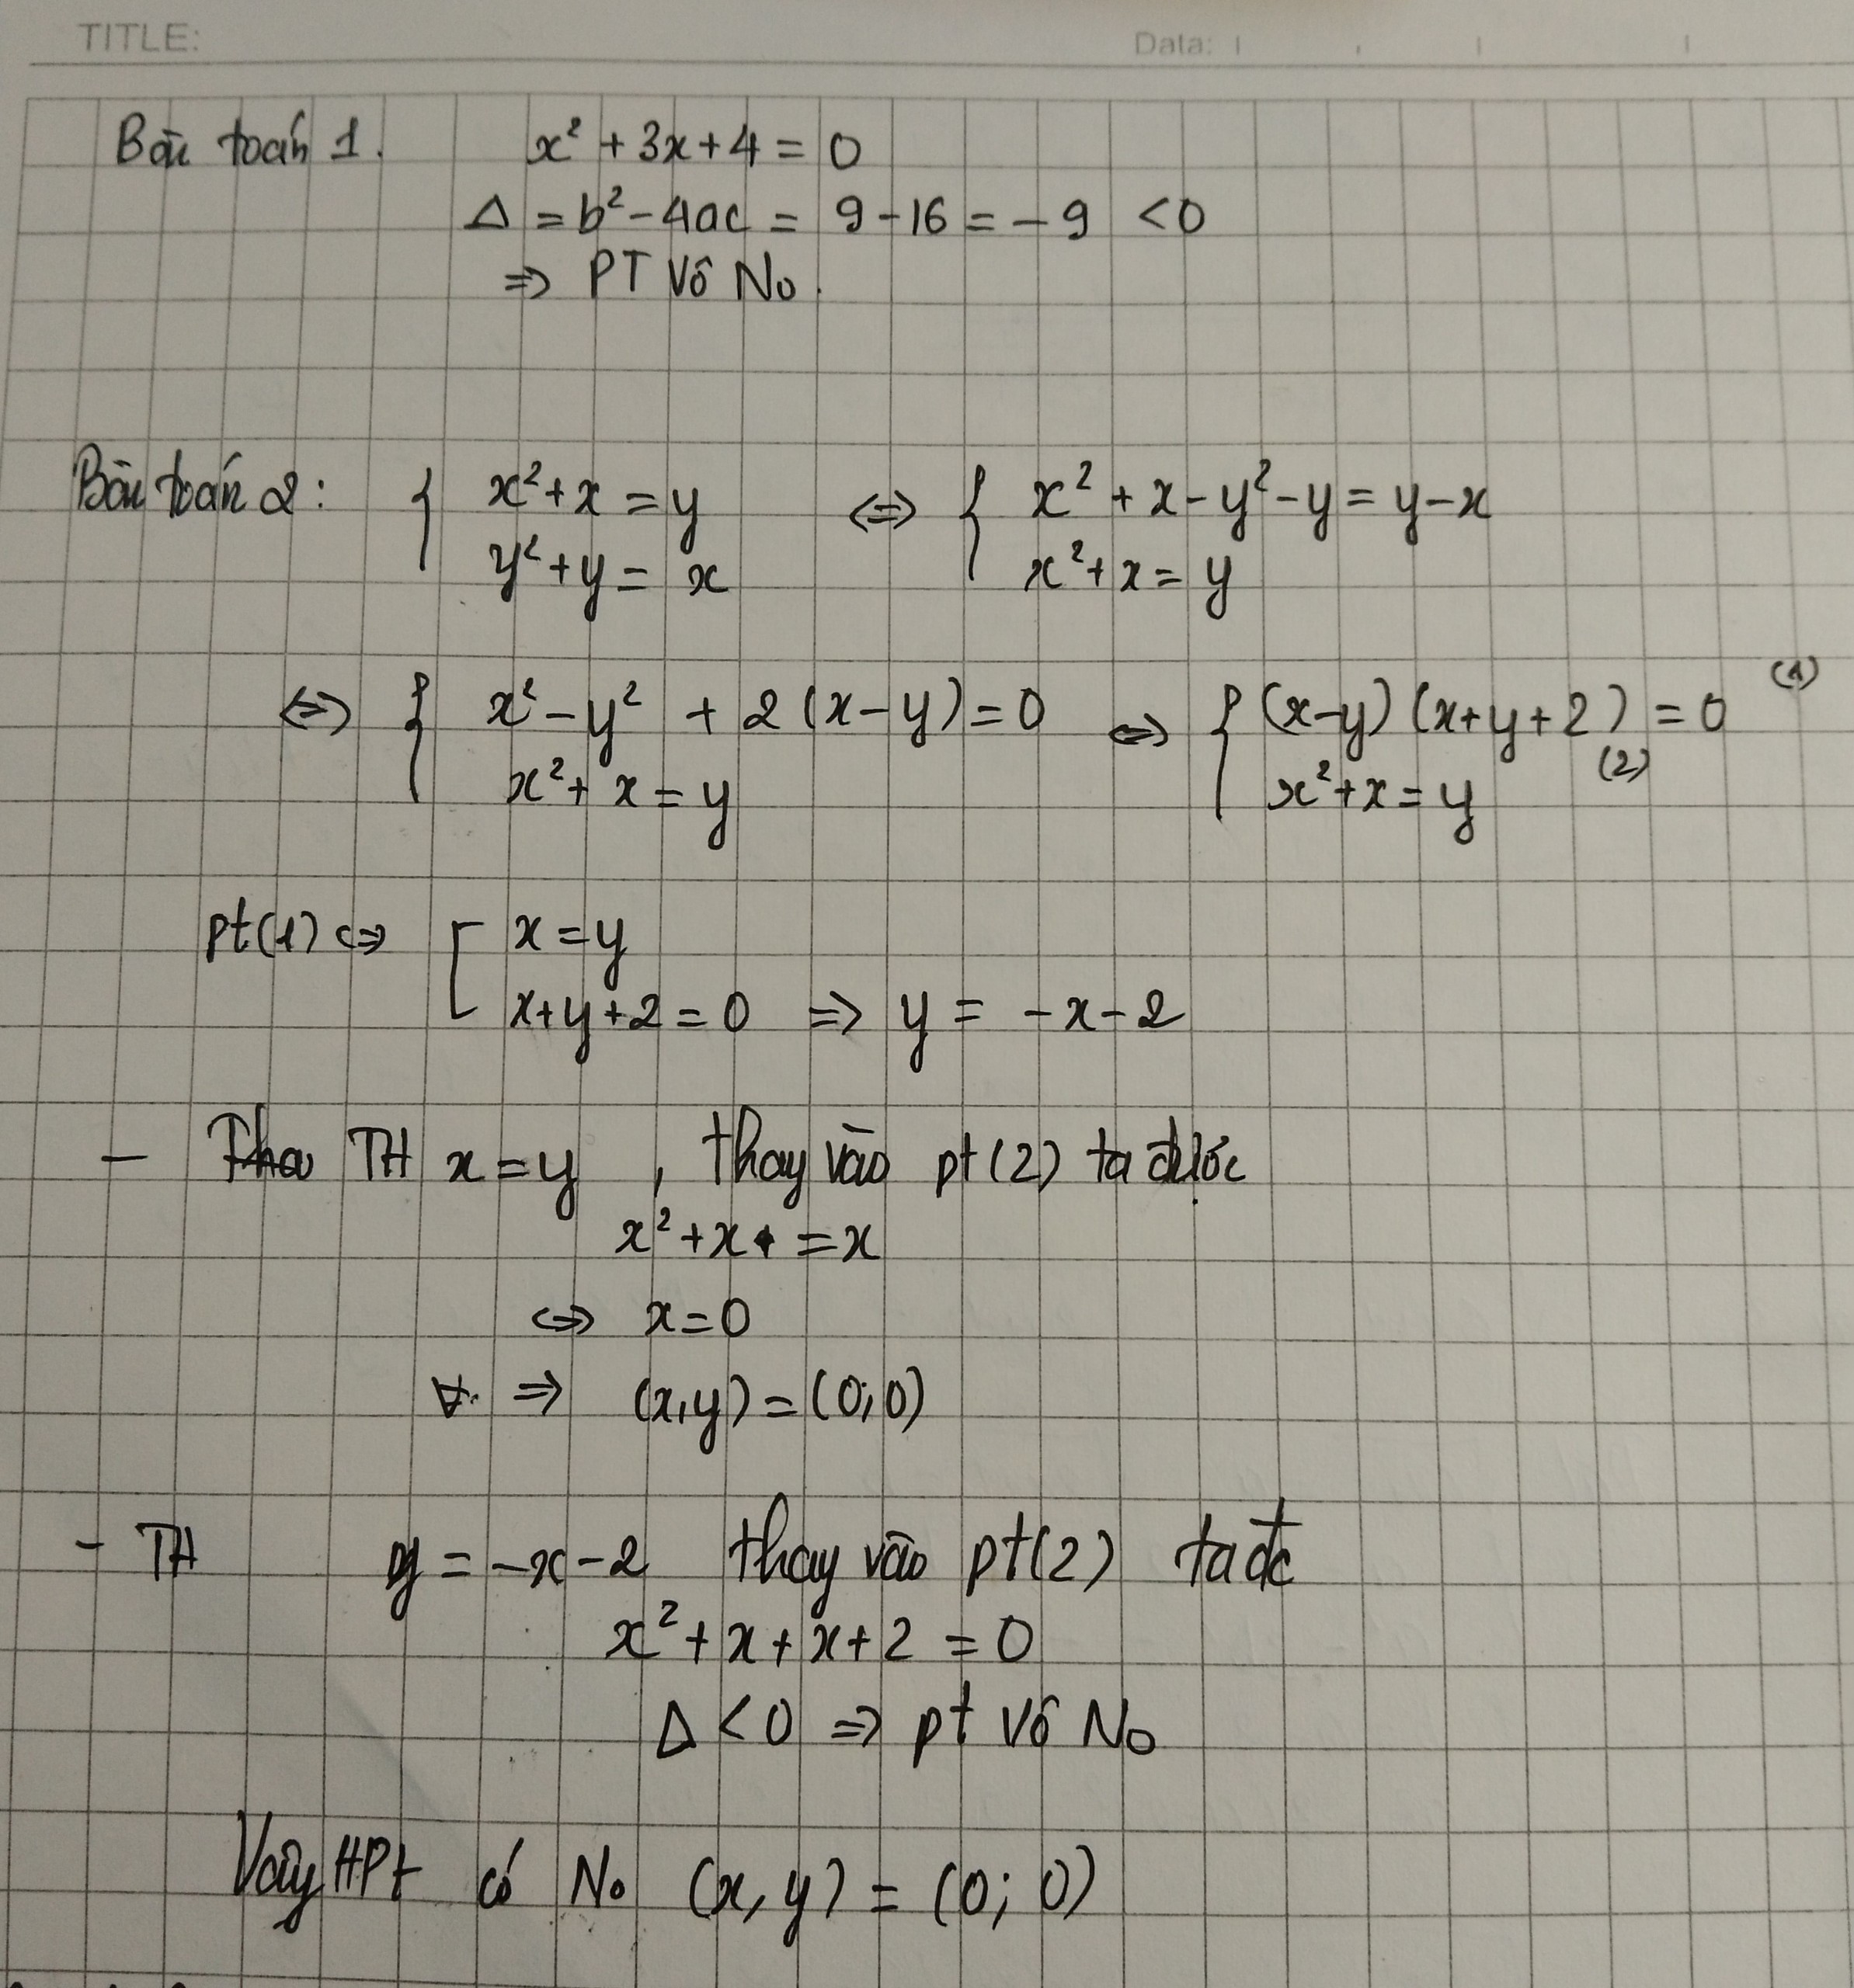 TITLE:
Data:
Bài toán 1. x² + 3x + 4 = 0
Δ = b² - 4ac = 9 - 16 = -9 < 0
⇒ PT Vô No.
Bài toán 2: { x² + x = y ⇔ { x² + x - y² - y = y - x
y² + y = x x² + x = y
⇔ { x² - y² + 2(x - y) = 0 ⇔ { (x - y)(x + y + 2) = 0 (1)
x² + x = y x² + x = y (2)
pt(1) ⇔ [ x = y
x + y + 2 = 0 ⇒ y = -x - 2
- TH x = y, thay vào pt(2) ta được
x² + x = x
⇔ x = 0
⇒ (x,y) = (0;0)
- TH y = -x - 2 thay vào pt(2) ta đc
x² + x + x + 2 = 0
Δ < 0 ⇒ pt Vô No
Vậy HPt có No (x,y) = (0;0)